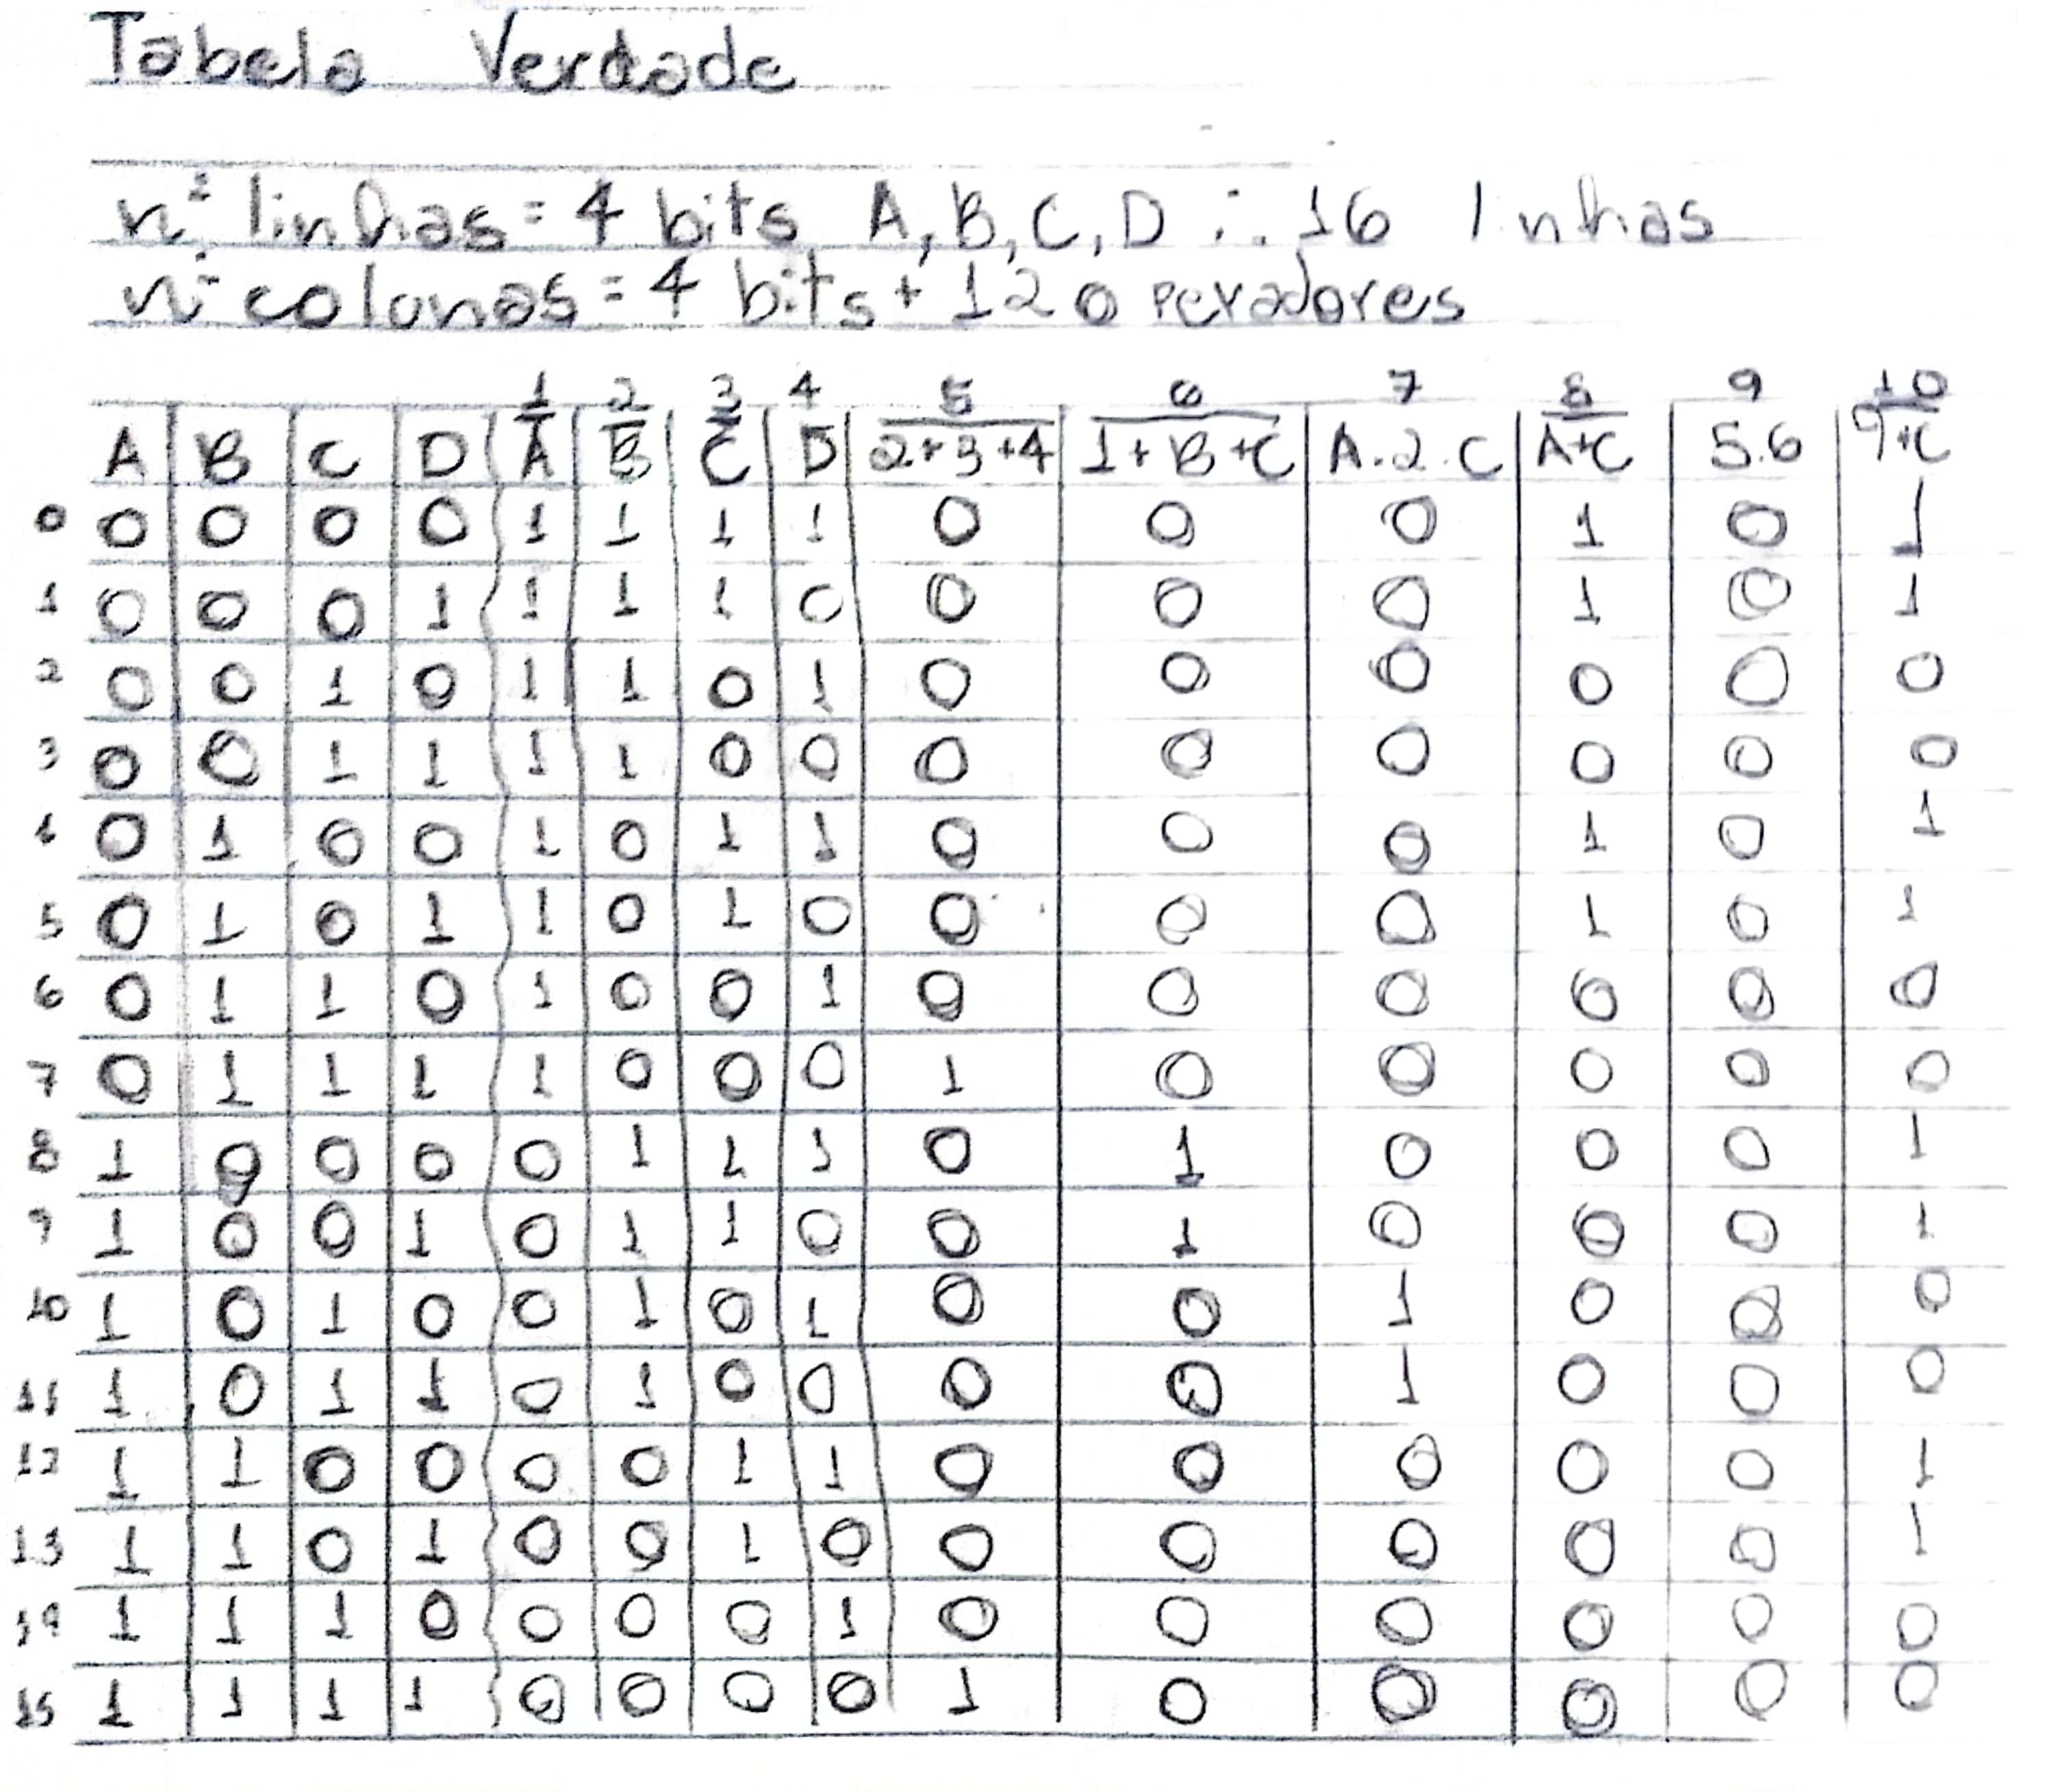 Tabela Verdade
nº linhas = 4 bits A, B, C, D ∴ 16 linhas
nº colunas = 4 bits + 12 operadores
1 2 3 4 5 6 7 8 9 10
A B C D A̅ B̅ C̅ D̅ 2+3+4 1+B+C A.2.C A+C 5.6 9+C
0 0 0 0 0 1 1 1 1 0 0 0 1 0 1
1 0 0 0 1 1 1 1 0 0 0 0 1 0 1
2 0 0 1 0 1 1 0 1 0 0 0 0 0 0
3 0 0 1 1 1 1 0 0 0 0 0 0 0 0
4 0 1 0 0 1 0 1 1 0 0 0 1 0 1
5 0 1 0 1 1 0 1 0 0 0 0 1 0 1
6 0 1 1 0 1 0 0 1 0 0 0 0 0 0
7 0 1 1 1 1 0 0 0 1 0 0 0 0 0
8 1 0 0 0 0 1 1 1 0 1 0 0 0 1
9 1 0 0 1 0 1 1 0 0 1 0 0 0 1
10 1 0 1 0 0 1 0 1 0 0 1 0 0 0
11 1 0 1 1 0 1 0 0 0 0 1 0 0 0
12 1 1 0 0 0 0 1 1 0 0 0 0 0 1
13 1 1 0 1 0 0 1 0 0 0 0 0 0 1
14 1 1 1 0 0 0 0 1 0 0 0 0 0 0
15 1 1 1 1 0 0 0 0 1 0 0 0 0 0